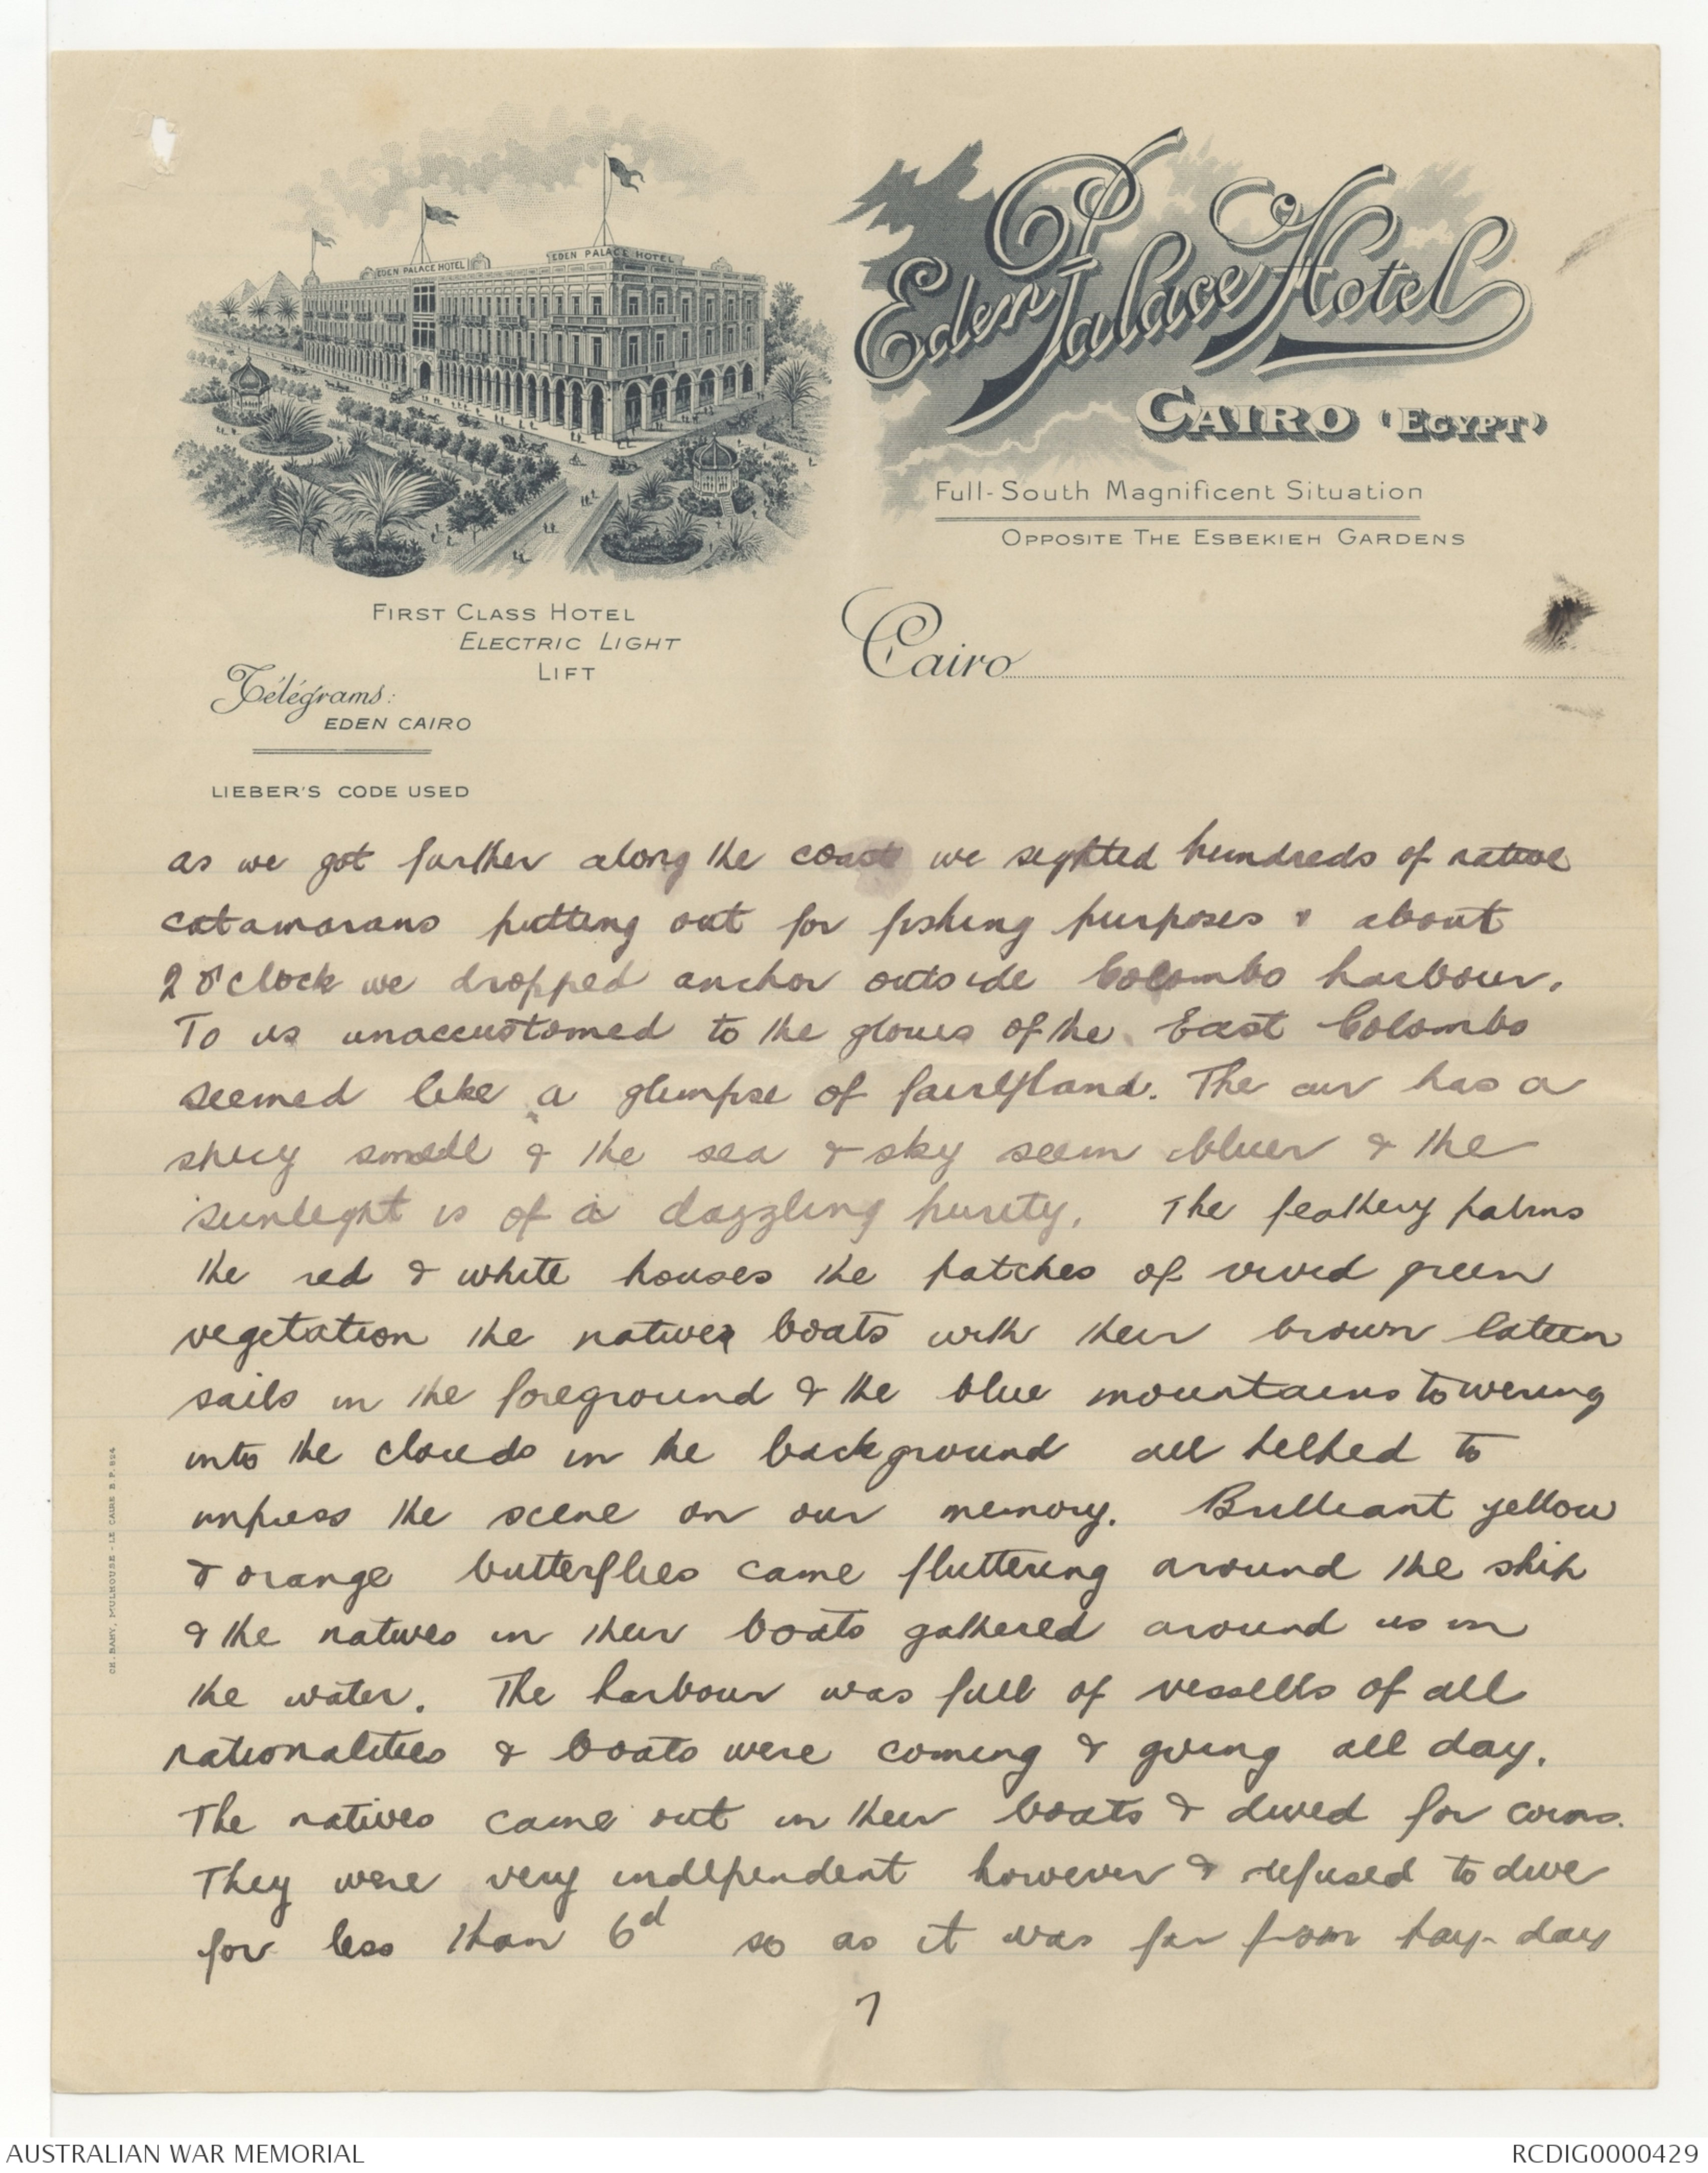 EDEN PALACE HOTEL
EDEN PALACE HOTEL
Eden Palace Hotel
CAIRO (EGYPT)
Full-South Magnificent Situation
OPPOSITE THE ESBEKIEH GARDENS
FIRST CLASS HOTEL
ELECTRIC LIGHT
LIFT
Télégrams:
EDEN CAIRO
LIEBER'S CODE USED
Cairo
as we got further along the coast we sighted hundreds of native
catamarans putting out for fishing purposes & about
2 o'clock we dropped anchor outside Colombo harbour.
To us unaccustomed to the glories of the East Colombo
seemed like a glimpse of fairyland. The air has a
spicy smell & the sea & sky seem bluer & the
sunlight is of a dazzling purity. The feathery palms
the red & white houses the patches of vivid green
vegetation the natives boats with their brown lateen
sails in the foreground & the blue mountains towering
into the clouds in the background all helped to
impress the scene on our memory. Brilliant yellow
& orange butterflies came fluttering around the ship
& the natives in their boats gathered around us in
the water. The harbour was full of vessells of all
nationalities & boats were coming & going all day.
The natives came out in their boats & dived for coins.
They were very independent however & refused to dive
for less than 6d so as it was far from pay-day
7
CH. BAHY, MULHOUSE - LE CAIRE B.P. 924
AUSTRALIAN WAR MEMORIAL
RCDIG0000429